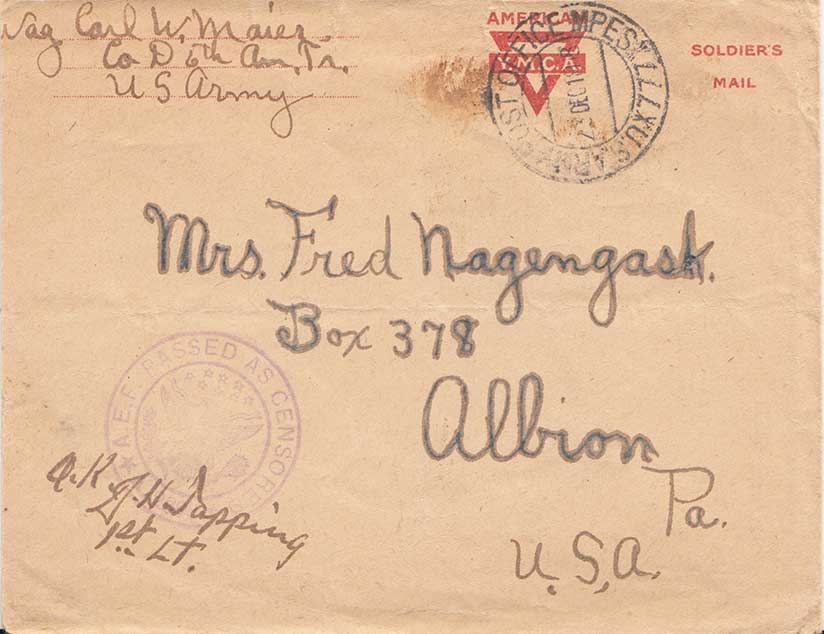 Wag Carl W. Maier
Co D 6th Am. Tr.
U S Army
AMERICAN
Y.M.C.A.
SOLDIER'S
MAIL
DEC
Mrs. Fred Nagengast.
Box 378
Albion
Pa.
U.S.A.
A.E.F. PASSED AS CENSORED
O.K.
J.H. Tapping
1st Lt.